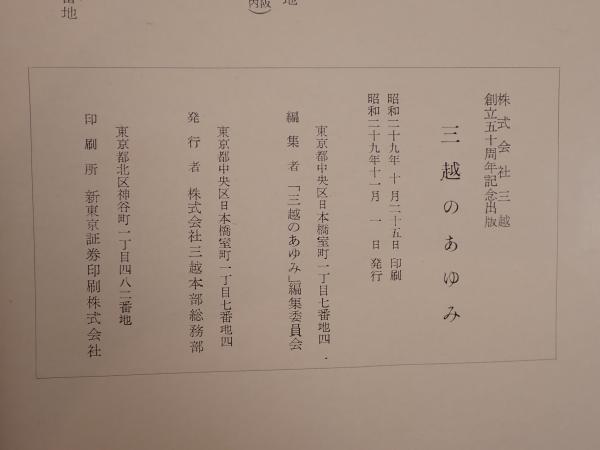 株式会社三越
創立五十周年記念出版
三越のあゆみ
昭和二十九年 十月二十五日 印刷
昭和二十九年十一月 一 日 発行
東京都中央区日本橋室町一丁目七番地四
編集者 「三越のあゆみ」編集委員会
東京都中央区日本橋室町一丁目七番地四
発行者 株式会社三越本部総務部
東京都北区神谷町一丁目四八二番地
印刷所 新東京証券印刷株式会社
地
内
番地